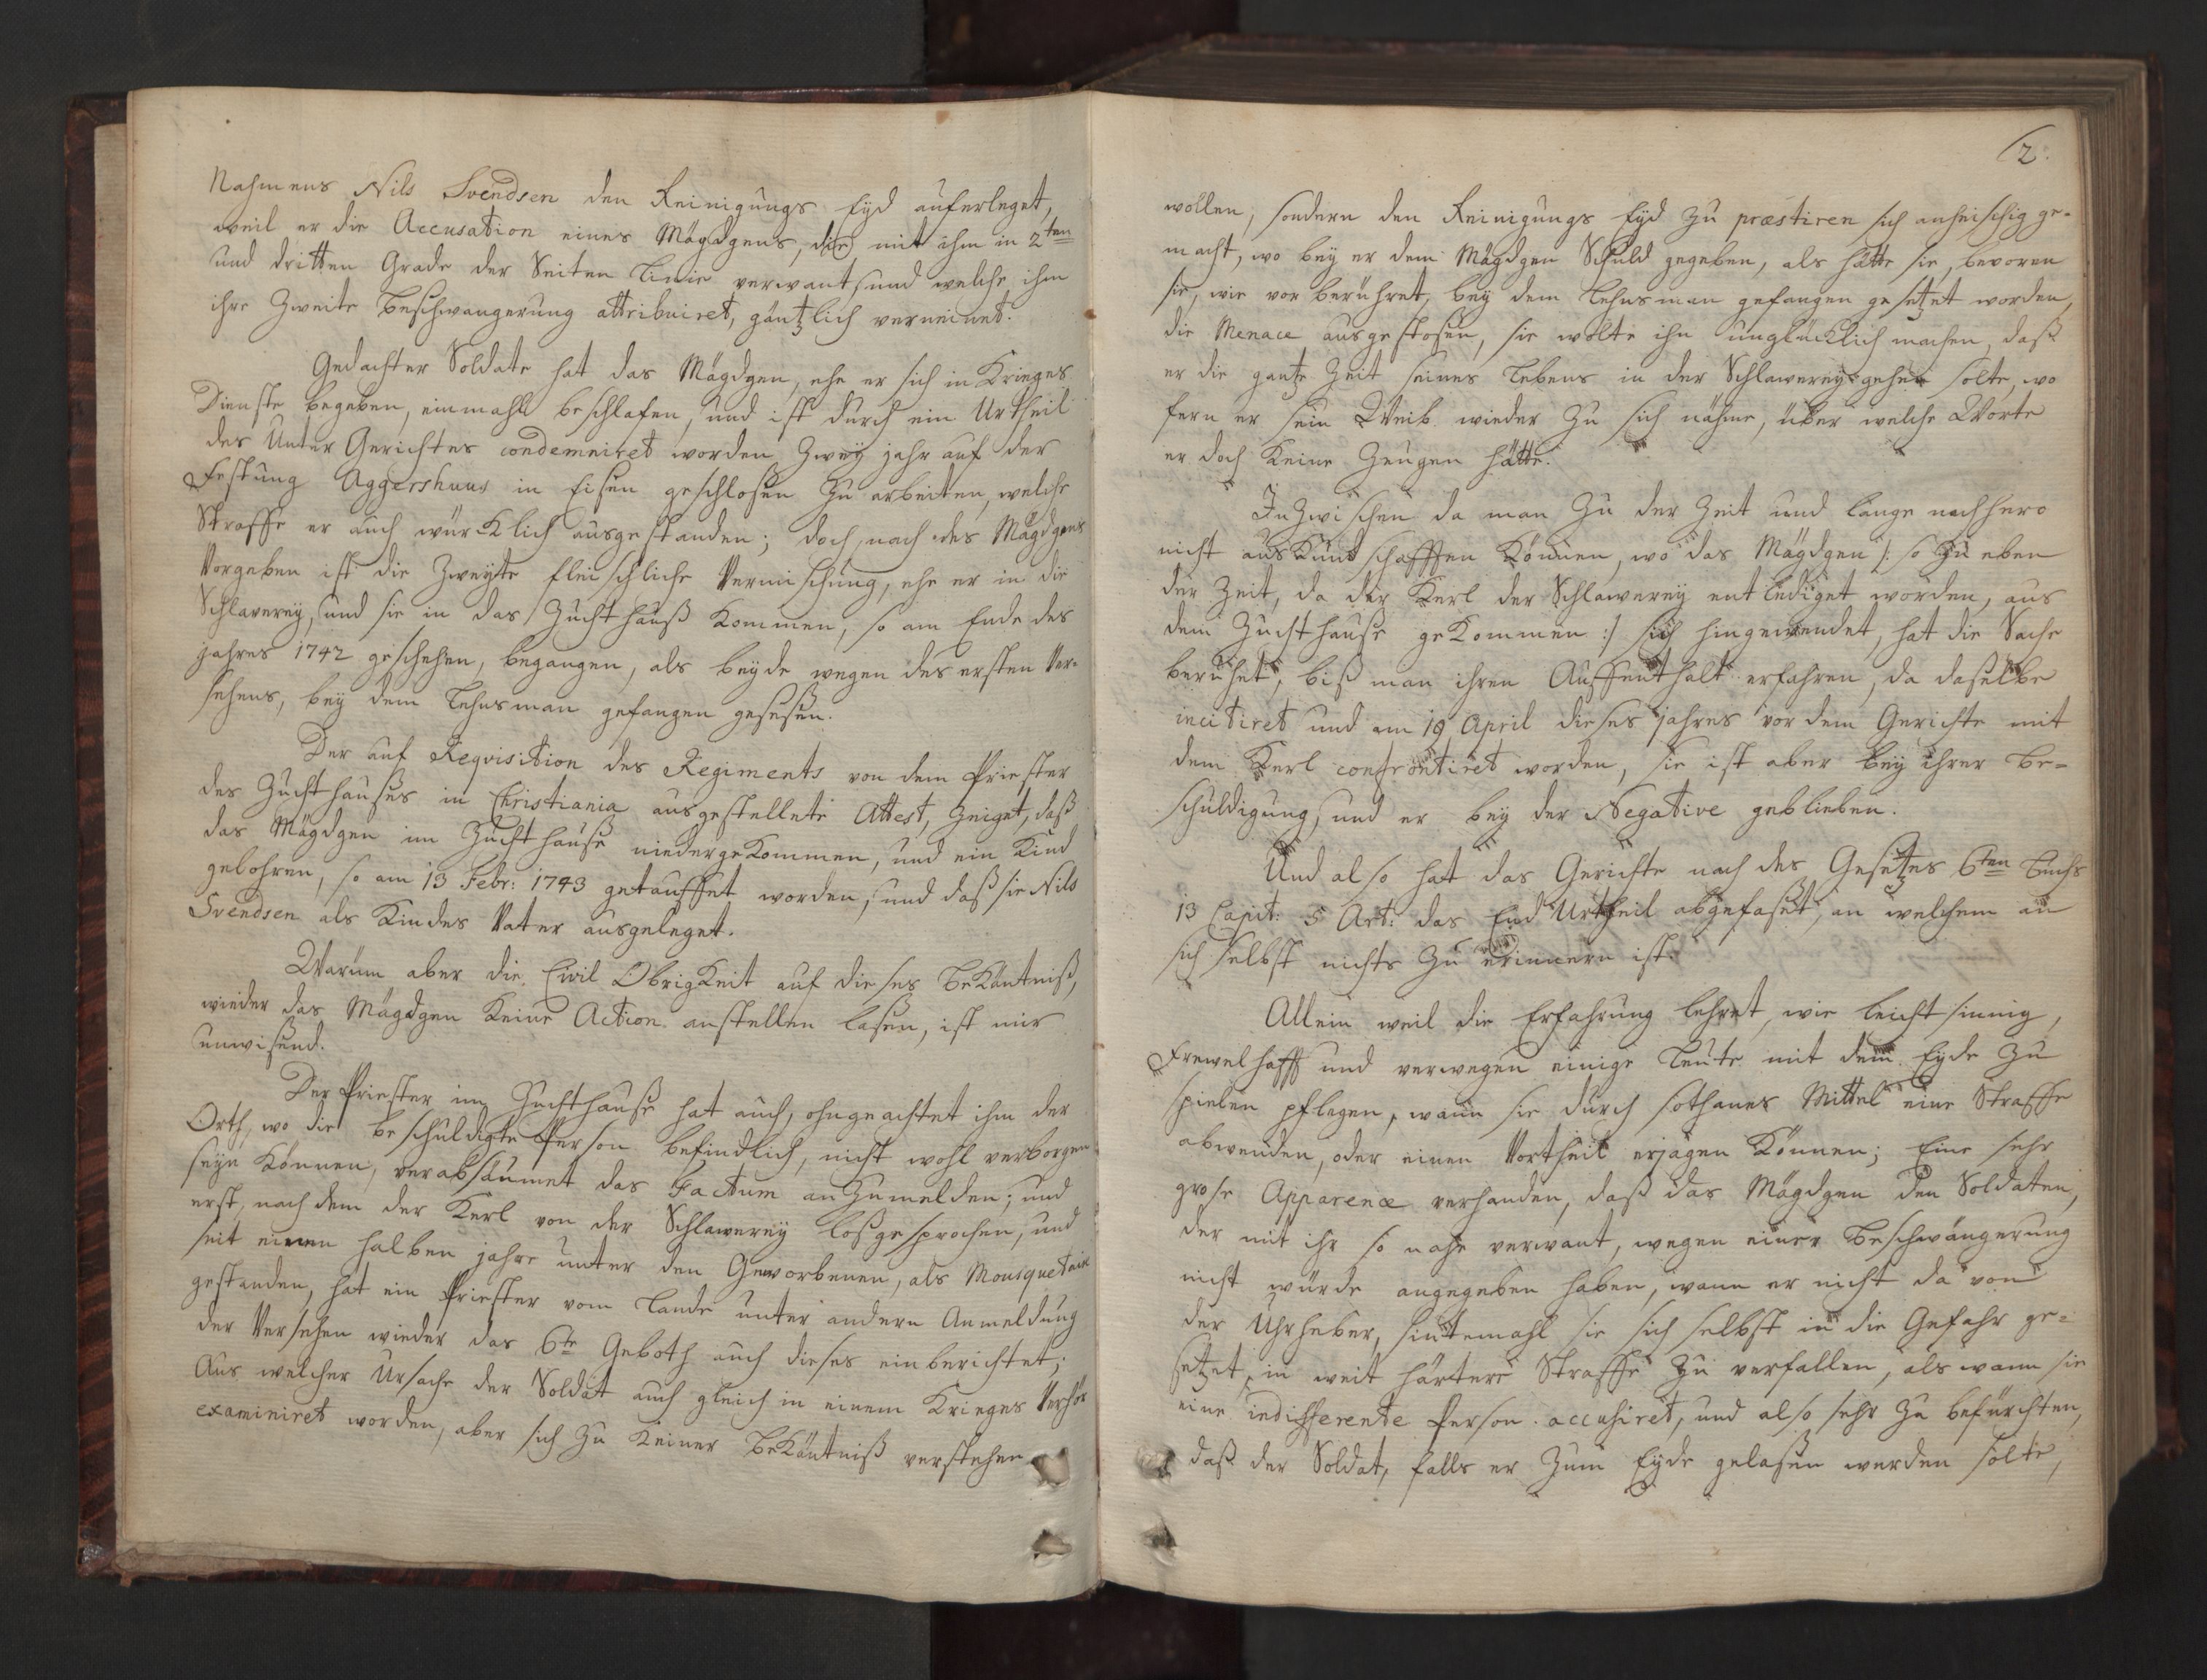 Nahmens Nils Svendsen den Reinigungs Eyd auferleget,
weil er die Accusation eines Mägdgens, die mit ihm in 2ten
und dritten Grade der Seiten Linie verwant, und welche ihm
ihre Zweite Beschwangerung attribuiret, gäntzlich verneinet.
Gedachter Soldate hat das Mägdgen, ehe er sich in Krieges
Dienste begeben, einmahl beschlafen, und ist durch ein Urtheil
des Unter Gerichtes condemniret worden Zwey jahr auf der
Festung Aggershuus in Eisen geschlosen Zu arbeiten, welche
Straffe er auch würcklich ausgestanden; doch nach des Mägdgens
Vorgeben ist die Zweyte fleischliche Vermischung, ehe er in die
Schlaverey, und sie in das Zuchthauß Kommen, so am Ende des
jahres 1742 geschehen, begangen, als beyde wegen des ersten Ver-
sehens, bey dem Lehnsman gefangen gesesen.
Der auf Reqvisition des Regiments von dem Priester
des Zuchthauses in Christiania ausgestellete Attest, Zeiget, daß
das Mägdgen im Zuchthause niedergeKommen, und ein Kind
gebohren, so am 13 Febr: 1743 getauffet worden, und daß sie Nils
Svendsen als Kindes Vater ausgeleget.
Warum aber die Civil ObrigKeit auf dieses BeKäntniß,
wieder das Mägdgen Keine Action anstellen lasen, ist mir
unwisend.
Der Priester im Zuchthause hat auch, ohngeachtet ihm der
Orth, wo die beschuldigte Person befindlich, nicht wohl verborgen
seyn Können, verabsäumet das Factum anZumelden; und
erst, nach dem der Kerl von der Schlawerey loßgesprochen, und
seit einen halben jahre unter den Geworbenen, als Mousquetair
gestanden, hat ein Priester vom Lande unter andern Anmeldung
der Versehen wieder das 6te Geboth auch dieses einberichtet;
Aus welcher Ursache der Soldat auch gleich in einem Krieges Verhör
examiniret worden, aber sich Zu Keiner BeKäntniß verstehen
2.
wollen, sondern den Reinigungs Eyd Zu præstiren sich anheischig ge-
macht, wo bey er dem Mägdgen Schuld gegeben, als hätte sie, bevoren
sie, wie vor berühret, bey dem Lehnsman gefangen gesetzet worden,
die Menace ausgestosen, sie wolte ihn unglücklich machen, daß
er die gantze Zeit seines Lebens in der Schlawerey gehen solte, wo
fern er sein Weib wieder Zu sich nähme, über welche Worte
er doch Keine Zeugen hätte.
InZwischen da man Zu der Zeit und lange nachhero
nicht ausKundschafften Können, wo das Mägdgen /: so Zu eben
der Zeit, da der Kerl der Schlawerey entlediget worden, aus
dem Zuchthause geKommen :/ sich hingewendet, hat die Sache
beruhet, biß man ihren Auffenthalt erfahren, da daselbe
incitiret und am 19 April dieses jahres vor dem Gerichte mit
dem Kerl confrontiret worden, sie ist aber bey ihrer Be-
schuldigung, und er bey der Negative geblieben.
Und also hat das Gerichte nach des Gesetzes 6ten Buchs
13 Capit: 5 Art: das End Urtheil abgefaset, an welchem an
sich selbst nichts Zu erinnern ist.
Allein weil die Erfahrung lehret, wie leichtsinnig,
Frewelhafft und verwegen einige Leute mit dem Eyde Zu
spielen pflegen, wann sie durch sothanes Mittel eine Straffe
abwenden, oder einen Vortheil erjagen Können; Eine sehr
grose Apparence verhanden, daß das Mägdgen den Soldaten,
der mit ihr so nahe verwant, wegen einer Beschwängerung
nicht würde angegeben haben, wann er nicht da von
der Uhrheber, sintemahl sie sich selbst in die Gefahr ge-
setzet, in weit härtere Straffe Zu verfallen, als wann sie
eine indifferente Person accusiret, und also sehr Zu befürchten,
daß der Soldat, falls er Zum Eyde gelasen werden solte,